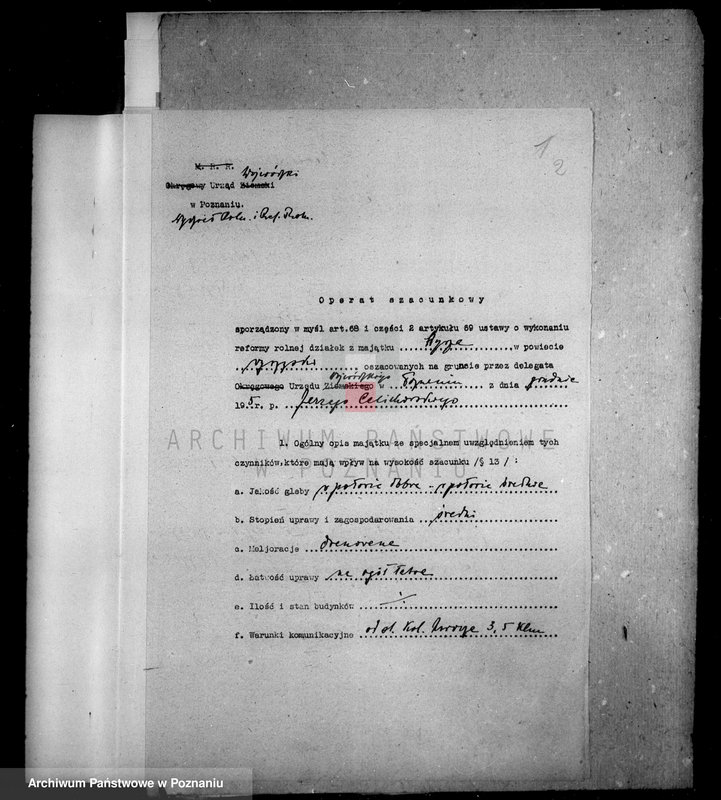 1
2
M. R. R. Wojewódzki
Okręgowy Urząd Ziemski
w Poznaniu.
Wydział Roln. i Ref. Roln.
Operat szacunkowy
sporządzony w myśl art.68 i części 2 artykułu 69 ustawy o wykonaniu
reformy rolnej działek z majątku w powiecie
oszacowanych na gruncie przez delegata
Wojewódzkiego
Okręgowego Urzędu Ziemskiego w Poznaniu z dnia grudnia
1935. r. p. Jerzego Celichowskiego
1. Ogólny opis majątku ze specjalnem uwzględnieniem tych
czynników, które mają wpływ na wysokość szacunku /§ 13 / :
a. Jakość gleby w połowie dobre - w połowie średnie
b. Stopień uprawy i zagospodarowania średni
c. Meljoracje drenowane
d. Łatwość uprawy na ogół łatwa
e. Ilość i stan budynków
f. Warunki komunikacyjne od st. kol. 3,5 klm
ARCHIWUM PAŃSTWOWE
W POZNANIU
Archiwum Państwowe w Poznaniu